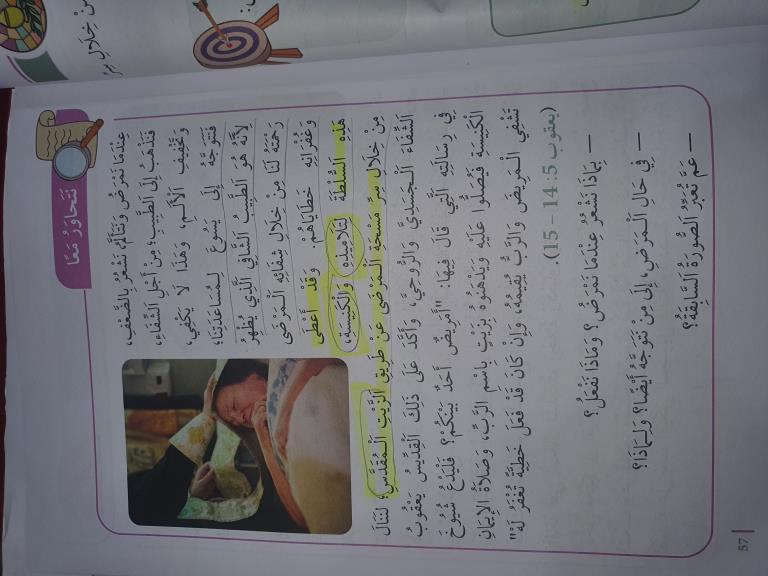 مِنْ خِلَالِ سِرِّ
نَتَحَاوَرُ مَعًا
عِنْدَمَا نَمْرَضُ وَنَتَأَلَّمُ نَشْعُرُ بِالضَّعْفِ،
فَنَذْهَبُ إِلَى الطَّبِيبِ؛ مِنْ أَجْلِ الشِّفَاءِ،
وَتَخْفِيفِ الْأَلَمِ، وَهَذَا لَا يَكْفِي،
فَنَتَوَجَّهُ إِلَى يَسُوعَ لِمُسَاعَدَتِنَا؛
لِأَنَّهُ هُوَ الطَّبِيبُ الشَّافِي الَّذِي يُظْهِرُ
رَحْمَتَهُ لَنَا مِنْ خِلَالِ شِفَائِهِ الْمَرْضَى
وَغُفْرَانِهِ خَطَايَاهُمْ. وَقَدْ أَعْطَى
هَذِهِ السُّلْطَةَ لِتَلَامِيذِهِ وَالْكَنِيسَةِ،
مِنْ خِلَالِ سِرِّ مَسْحَةِ الْمَرْضَى عَنْ طَرِيقِ الزَّيْتِ الْمُقَدَّسِ؛ لِنَنَالَ
الشِّفَاءَ الْجَسَدِيَّ وَالرُّوحِيَّ، وَأَكَّدَ عَلَى ذَلِكَ الْقِدِّيسُ يَعْقُوبُ
فِي رِسَالَتِهِ الَّتِي قَالَ فِيهَا: "أَمَرِيضٌ أَحَدٌ بَيْنَكُمْ؟ فَلْيَدْعُ شُيُوخَ
الْكَنِيسَةِ فَيُصَلُّوا عَلَيْهِ وَيَدْهَنُوهُ بِزَيْتٍ بِاسْمِ الرَّبِّ، وَصَلَاةُ الْإِيمَانِ
تَشْفِي الْمَرِيضَ وَالرَّبُّ يُقِيمُهُ، وَإِنْ كَانَ قَدْ فَعَلَ خَطِيَّةً تُغْفَرُ لَهُ"
(يعقوب 5: 14 – 15).
— بِمَاذَا نَشْعُرُ عِنْدَمَا نَمْرَضُ؟ وَمَاذَا نَفْعَلُ؟
— فِي حَالِ الْمَرَضِ، إِلَى مِنْ نَتَوَجَّهُ أَيْضًا؟ وَلِمَاذَا؟
— عَمَّ تُعَبِّرُ الصُّورَةُ السَّابِقَةُ؟
57